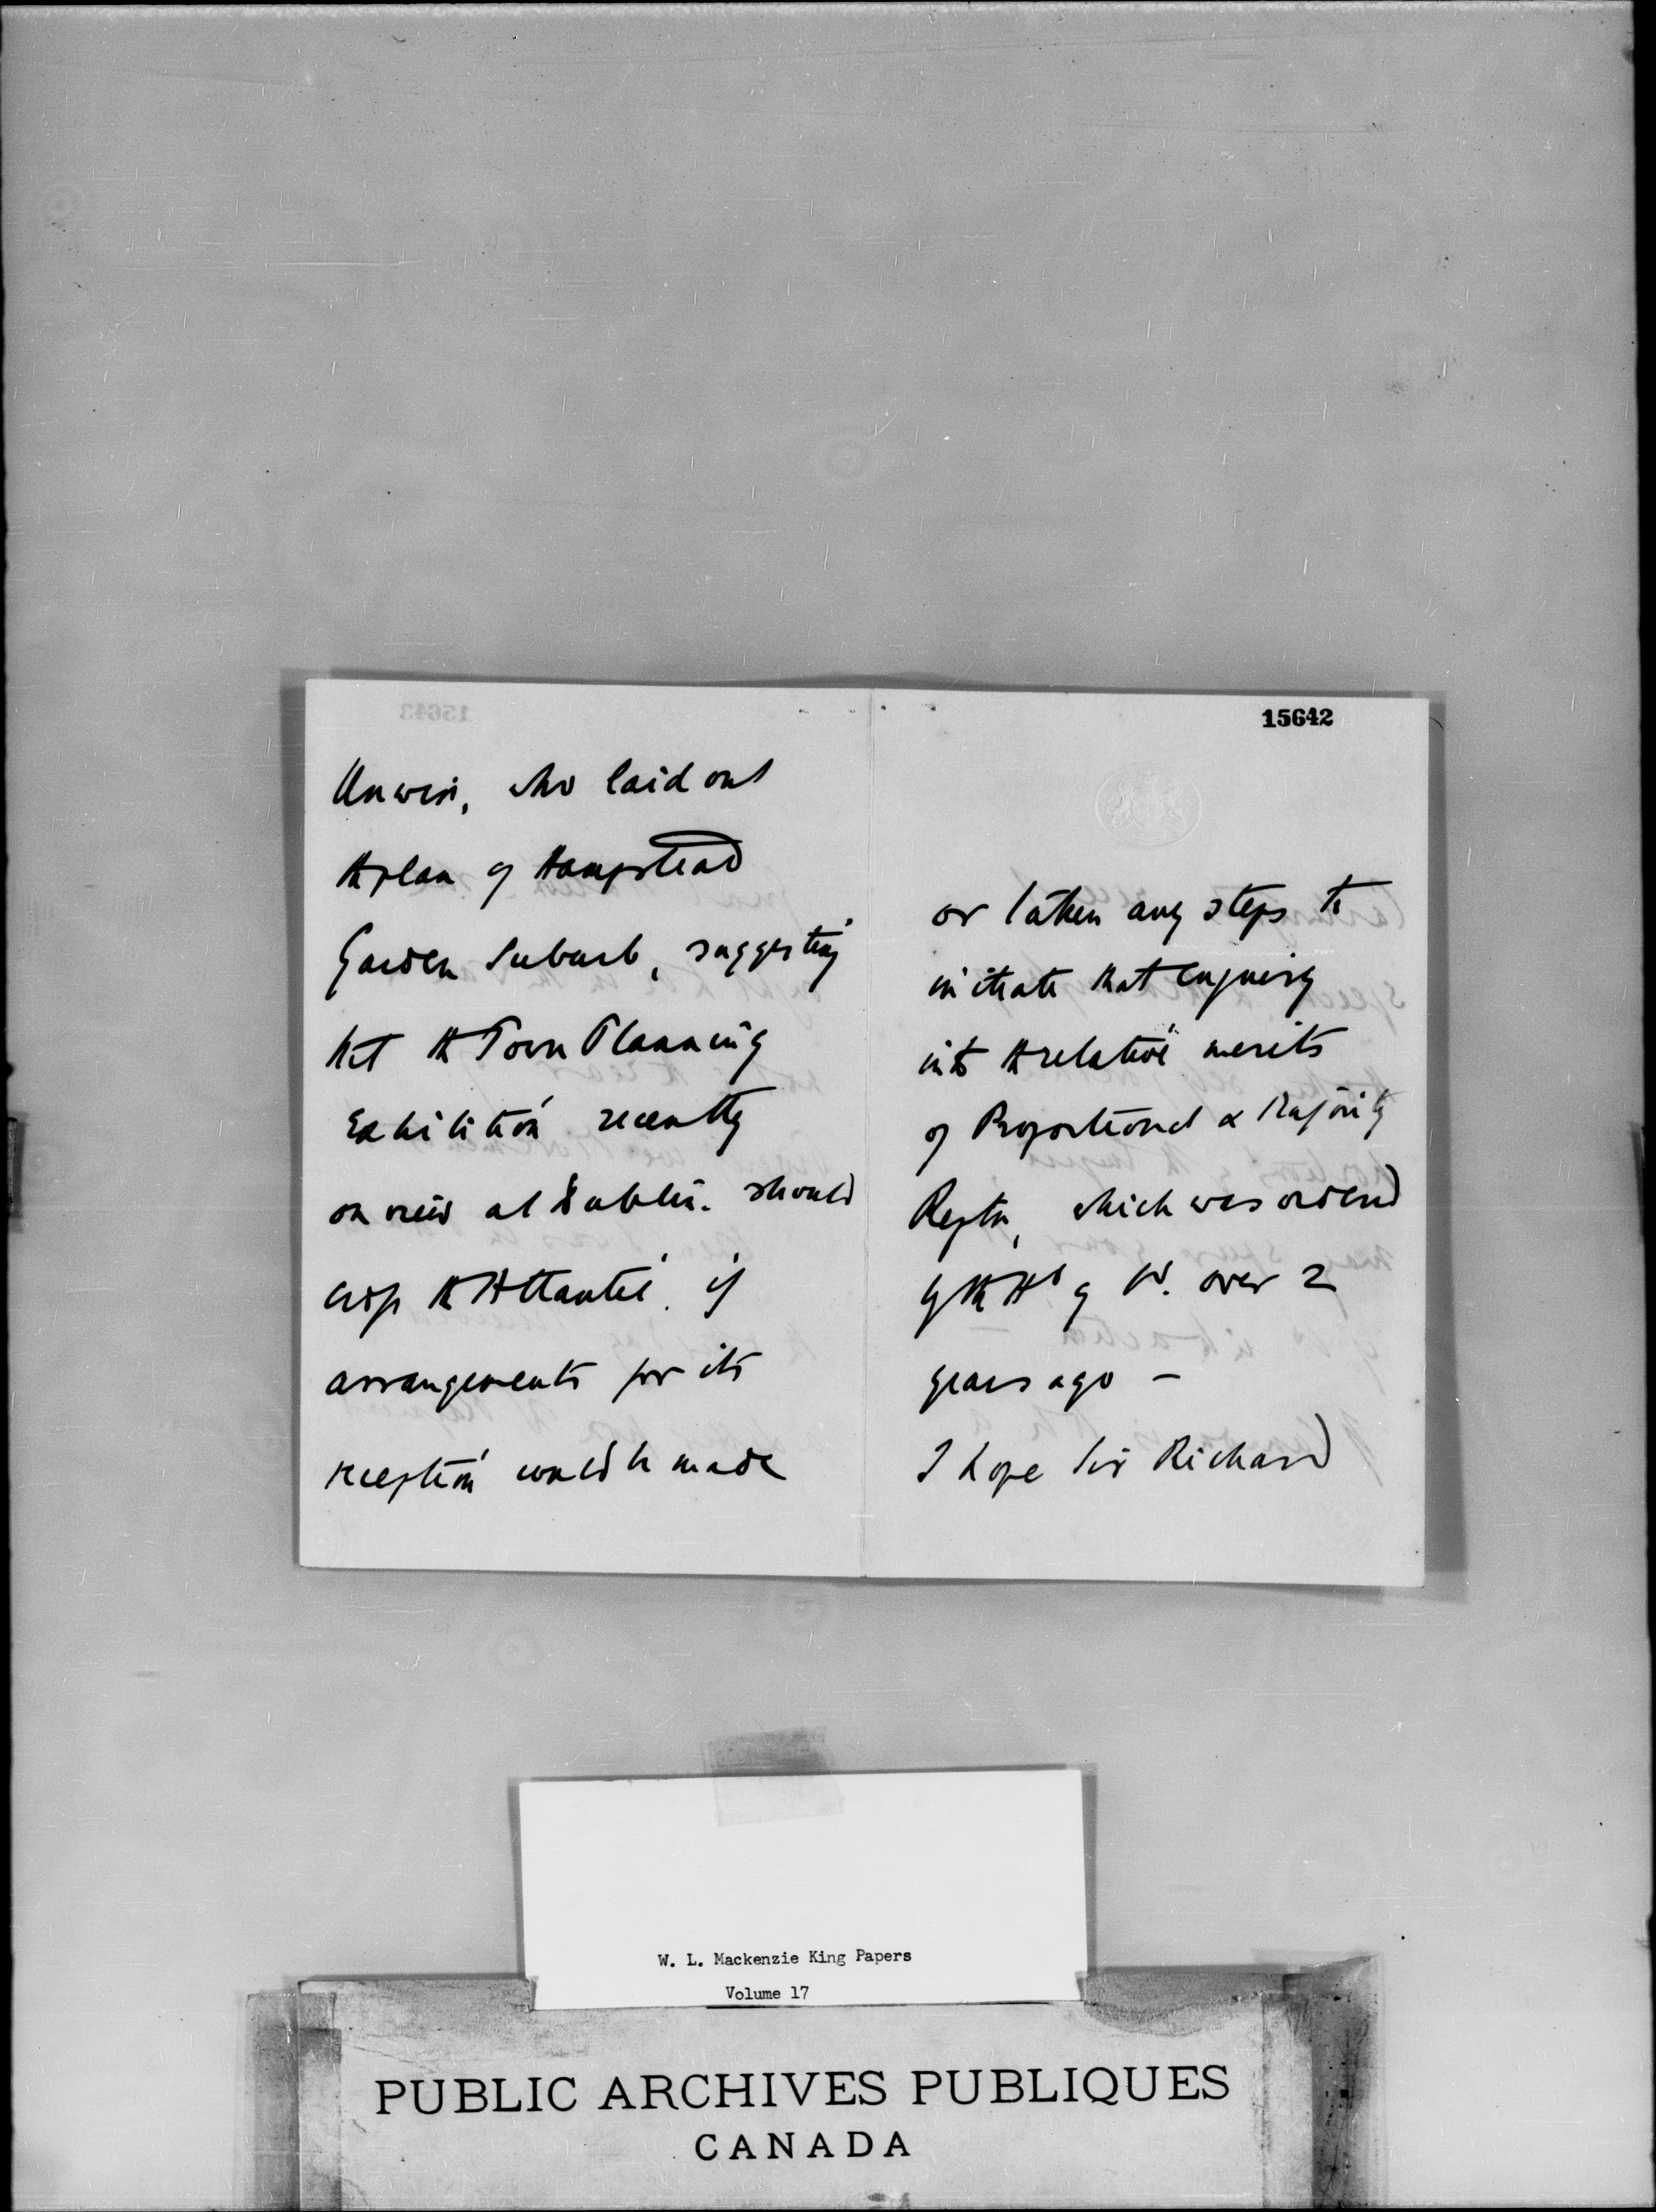 Unwin, who laid out
the plan of Hampstead
Garden Suburb, suggesting
tht the Town Planning
Exhibition recently
on view at Dublin. should
cross the Atlantic. if
arrangements for its
reception could be made
15642
or taken any steps to
initiate that enquiry
into the relative merits
of Proportional & Majority
Reptn, which was ordered
by the Hs of Cs. over 2
years ago –
I hope Sir Richard
W. L. Mackenzie King Papers
Volume 17
PUBLIC ARCHIVES PUBLIQUES
CANADA